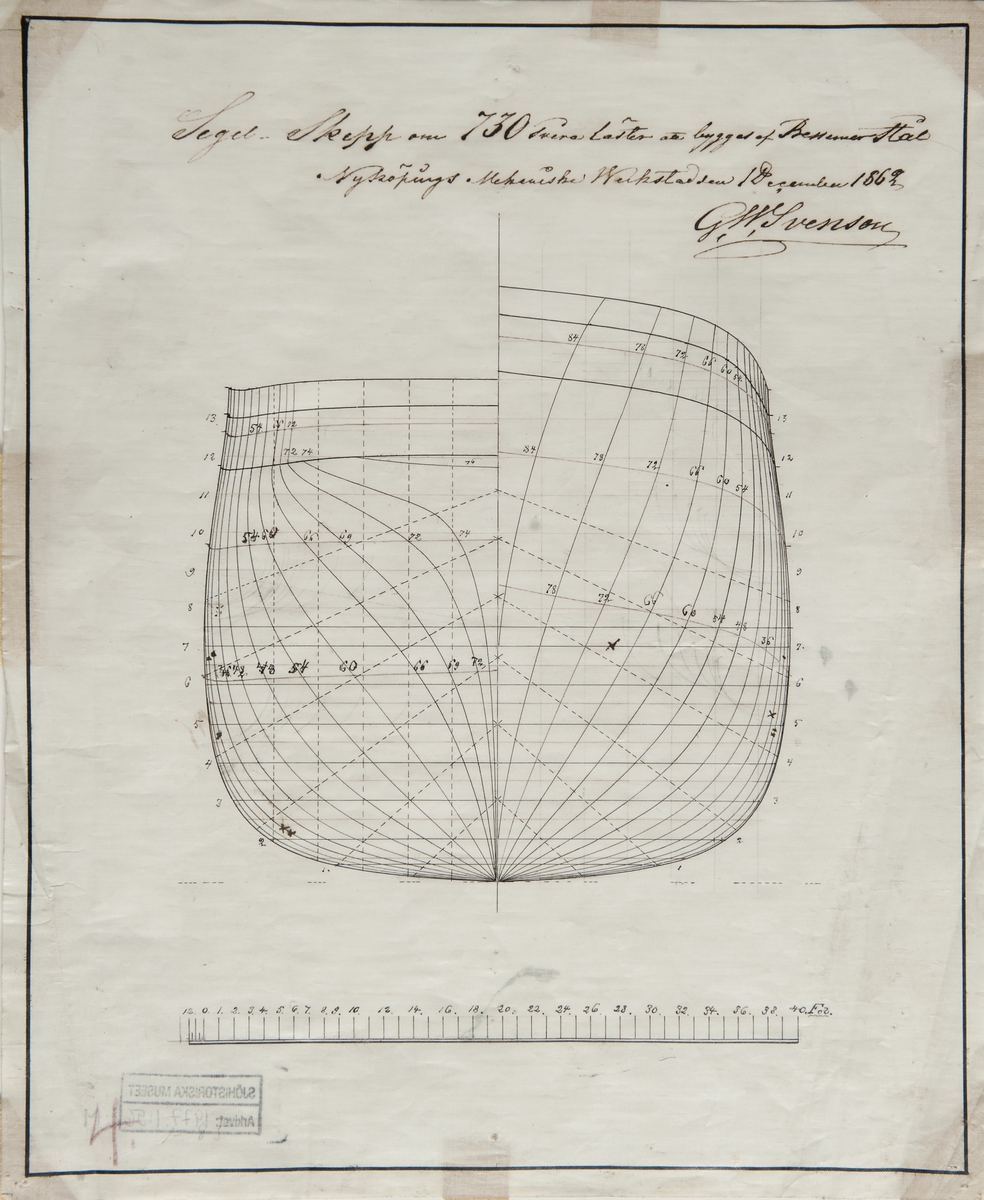 Segel-Skepp om 730 Svera Läster att bygges af Bessemer Stål
Nyköpings Mekaniska Werkstad den 1 December 1862
G,W,Svenson
84 78 72 66 60 54
13 54 66 72 13
72 74 74 84 78 72 66 60 54
12 12
11 11
10 54 60 66 69 72 74 10
9 78 72 66 60 54 48 36 9
8 8
7 7
6 48 54 60 66 69 72 6
5 5
4 4
3 3
2 2
1. 1
12 0. 1. 2. 3. 4. 5. 6. 7. 8. 9. 10. 12. 14. 16. 18. 20. 22. 24. 26. 28. 30. 32. 34. 36. 38. 40. Fot.
SJÖHISTORISKA MUSEET
Arkivet: